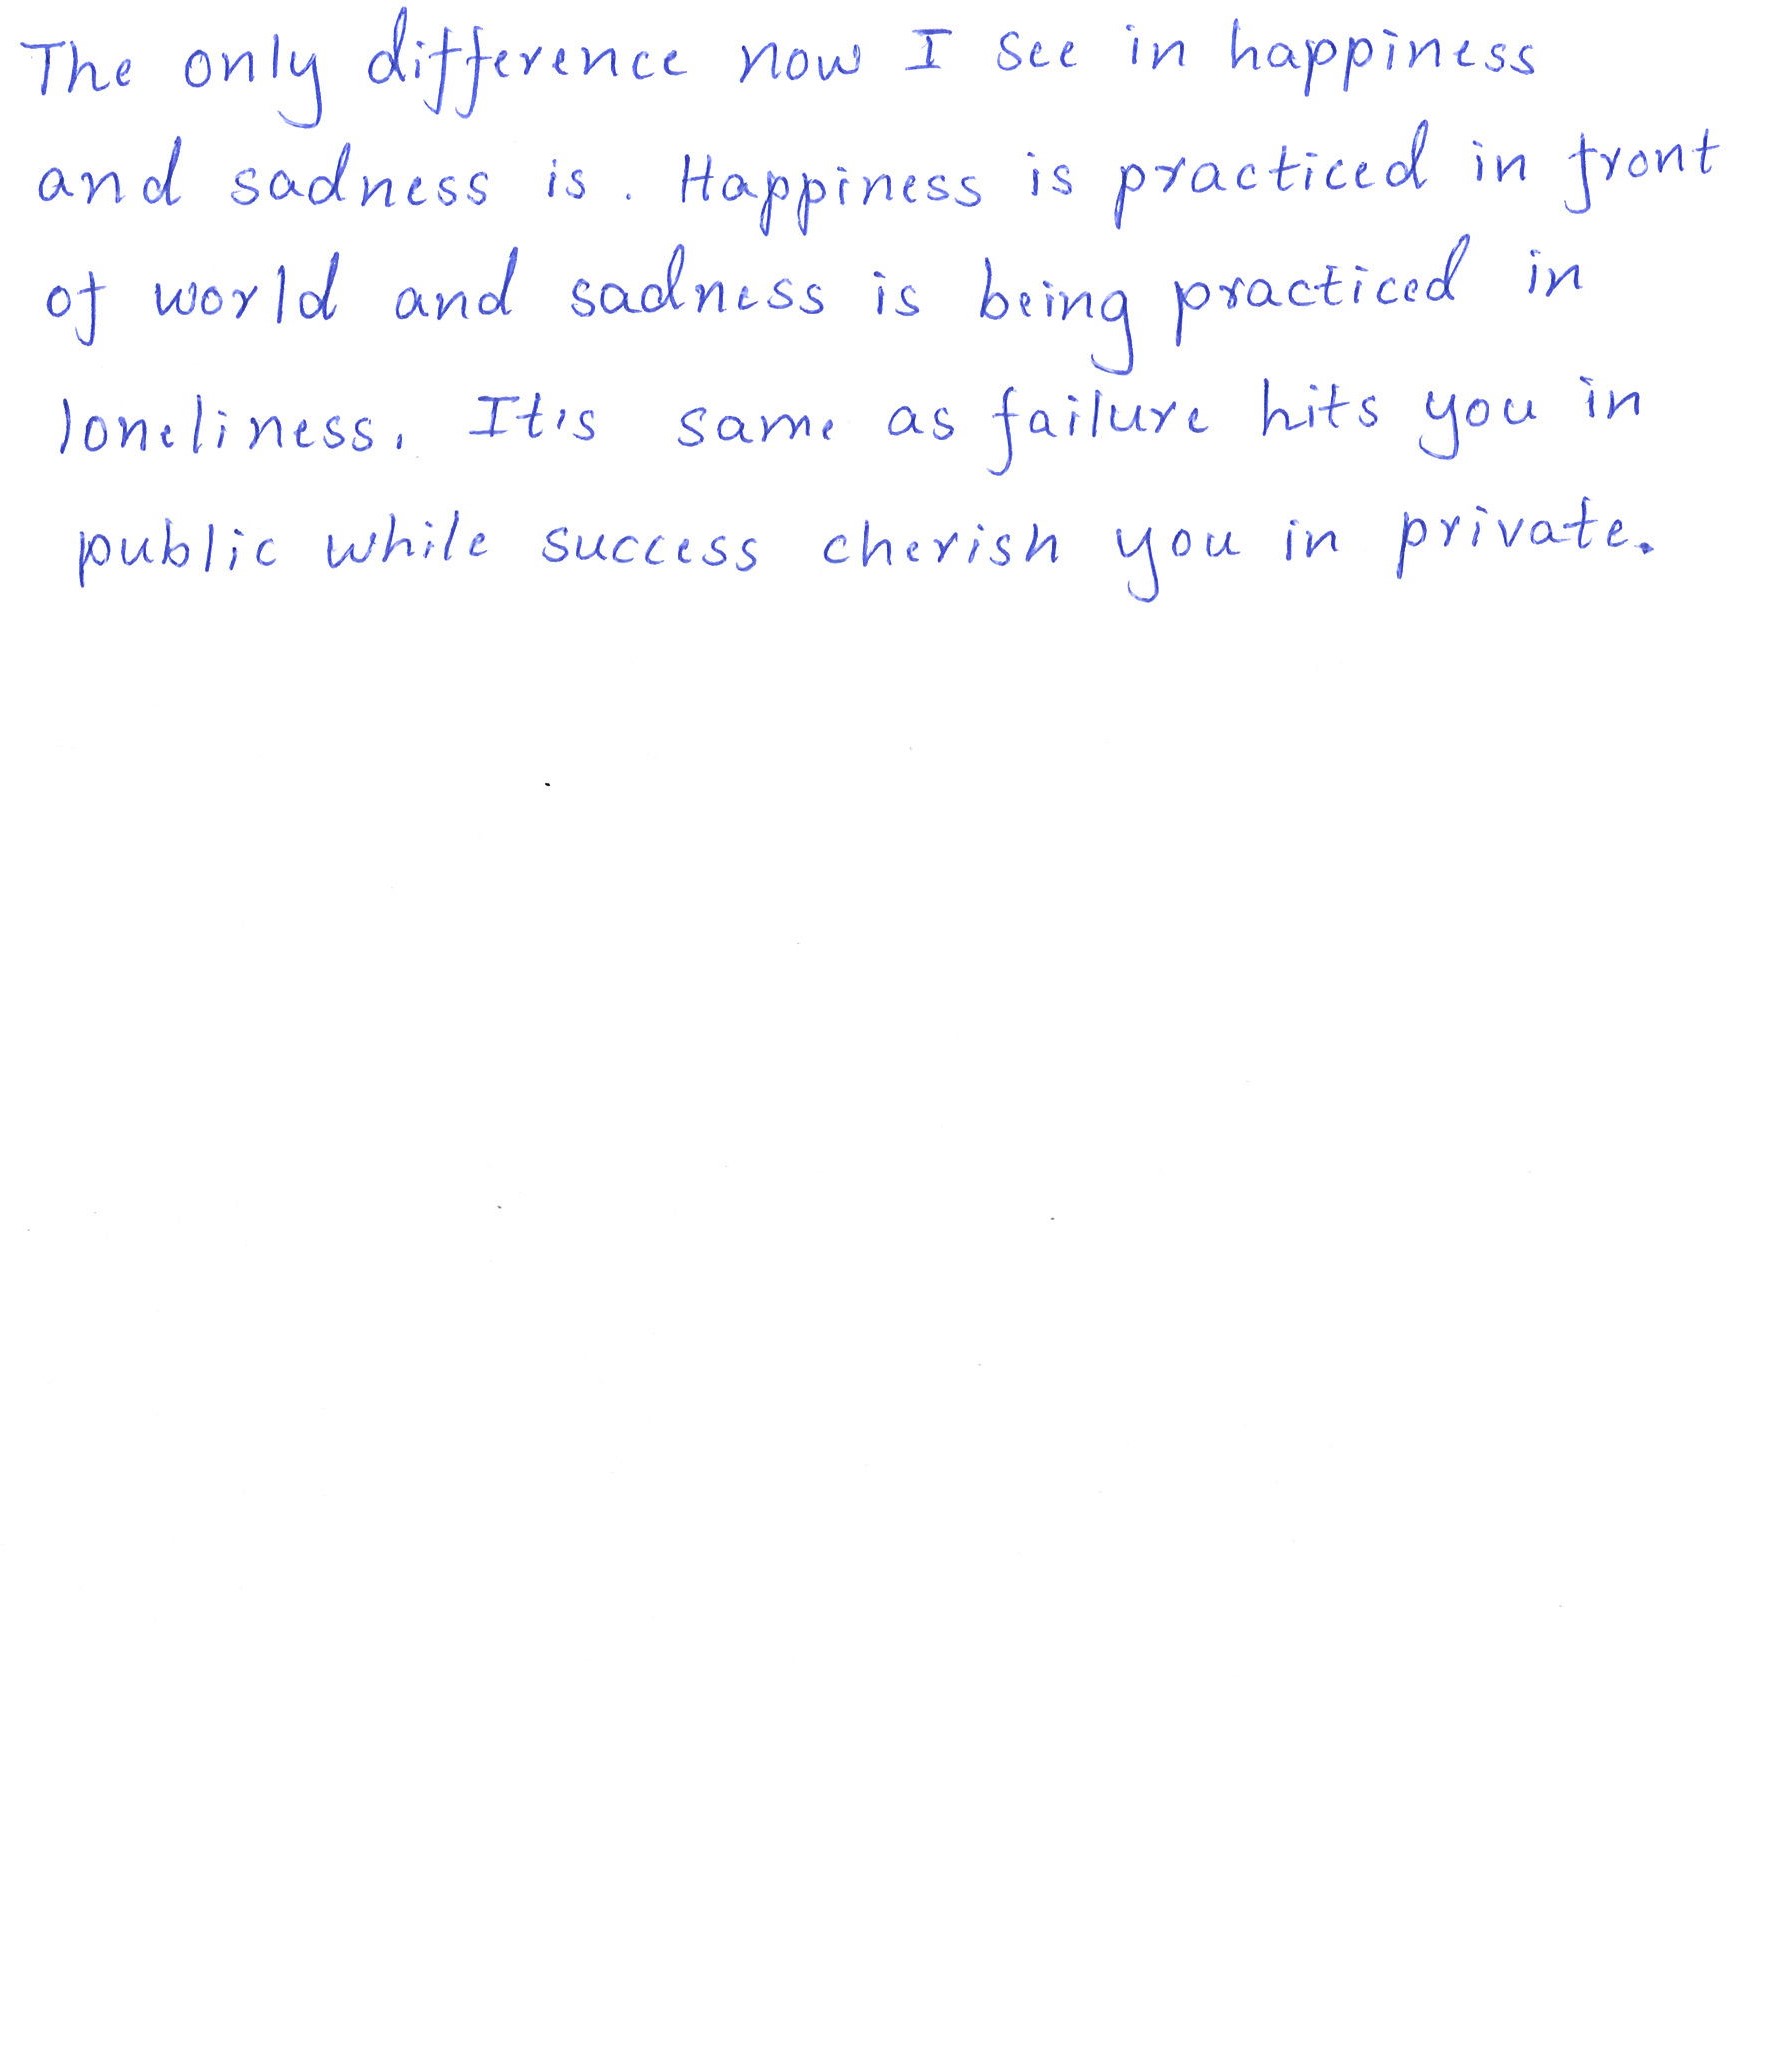 The only difference now I see in happiness
and sadness is . Happiness is practiced in front
of world and sadness is being practiced in
loneliness. It's same as failure hits you in
public while success cherish you in private.